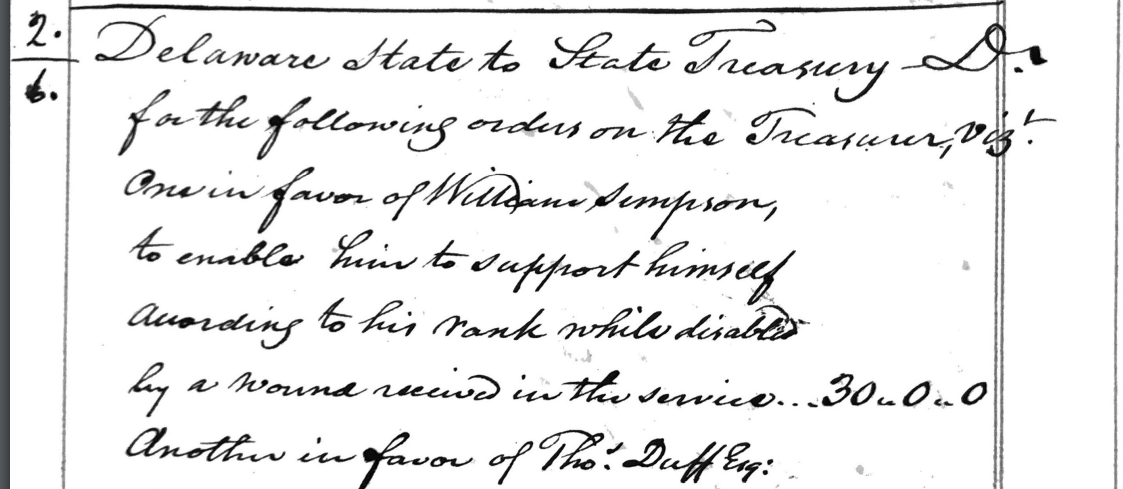 2. Delaware State to State Treasury D.r
6. for the following orders on the Treasurer, Vizt.
One in favor of William Simpson,
to enable him to support himself
according to his rank while disabled
by a wound received in the service...30"0"0
Another in favor of Thos. Duff Esq: